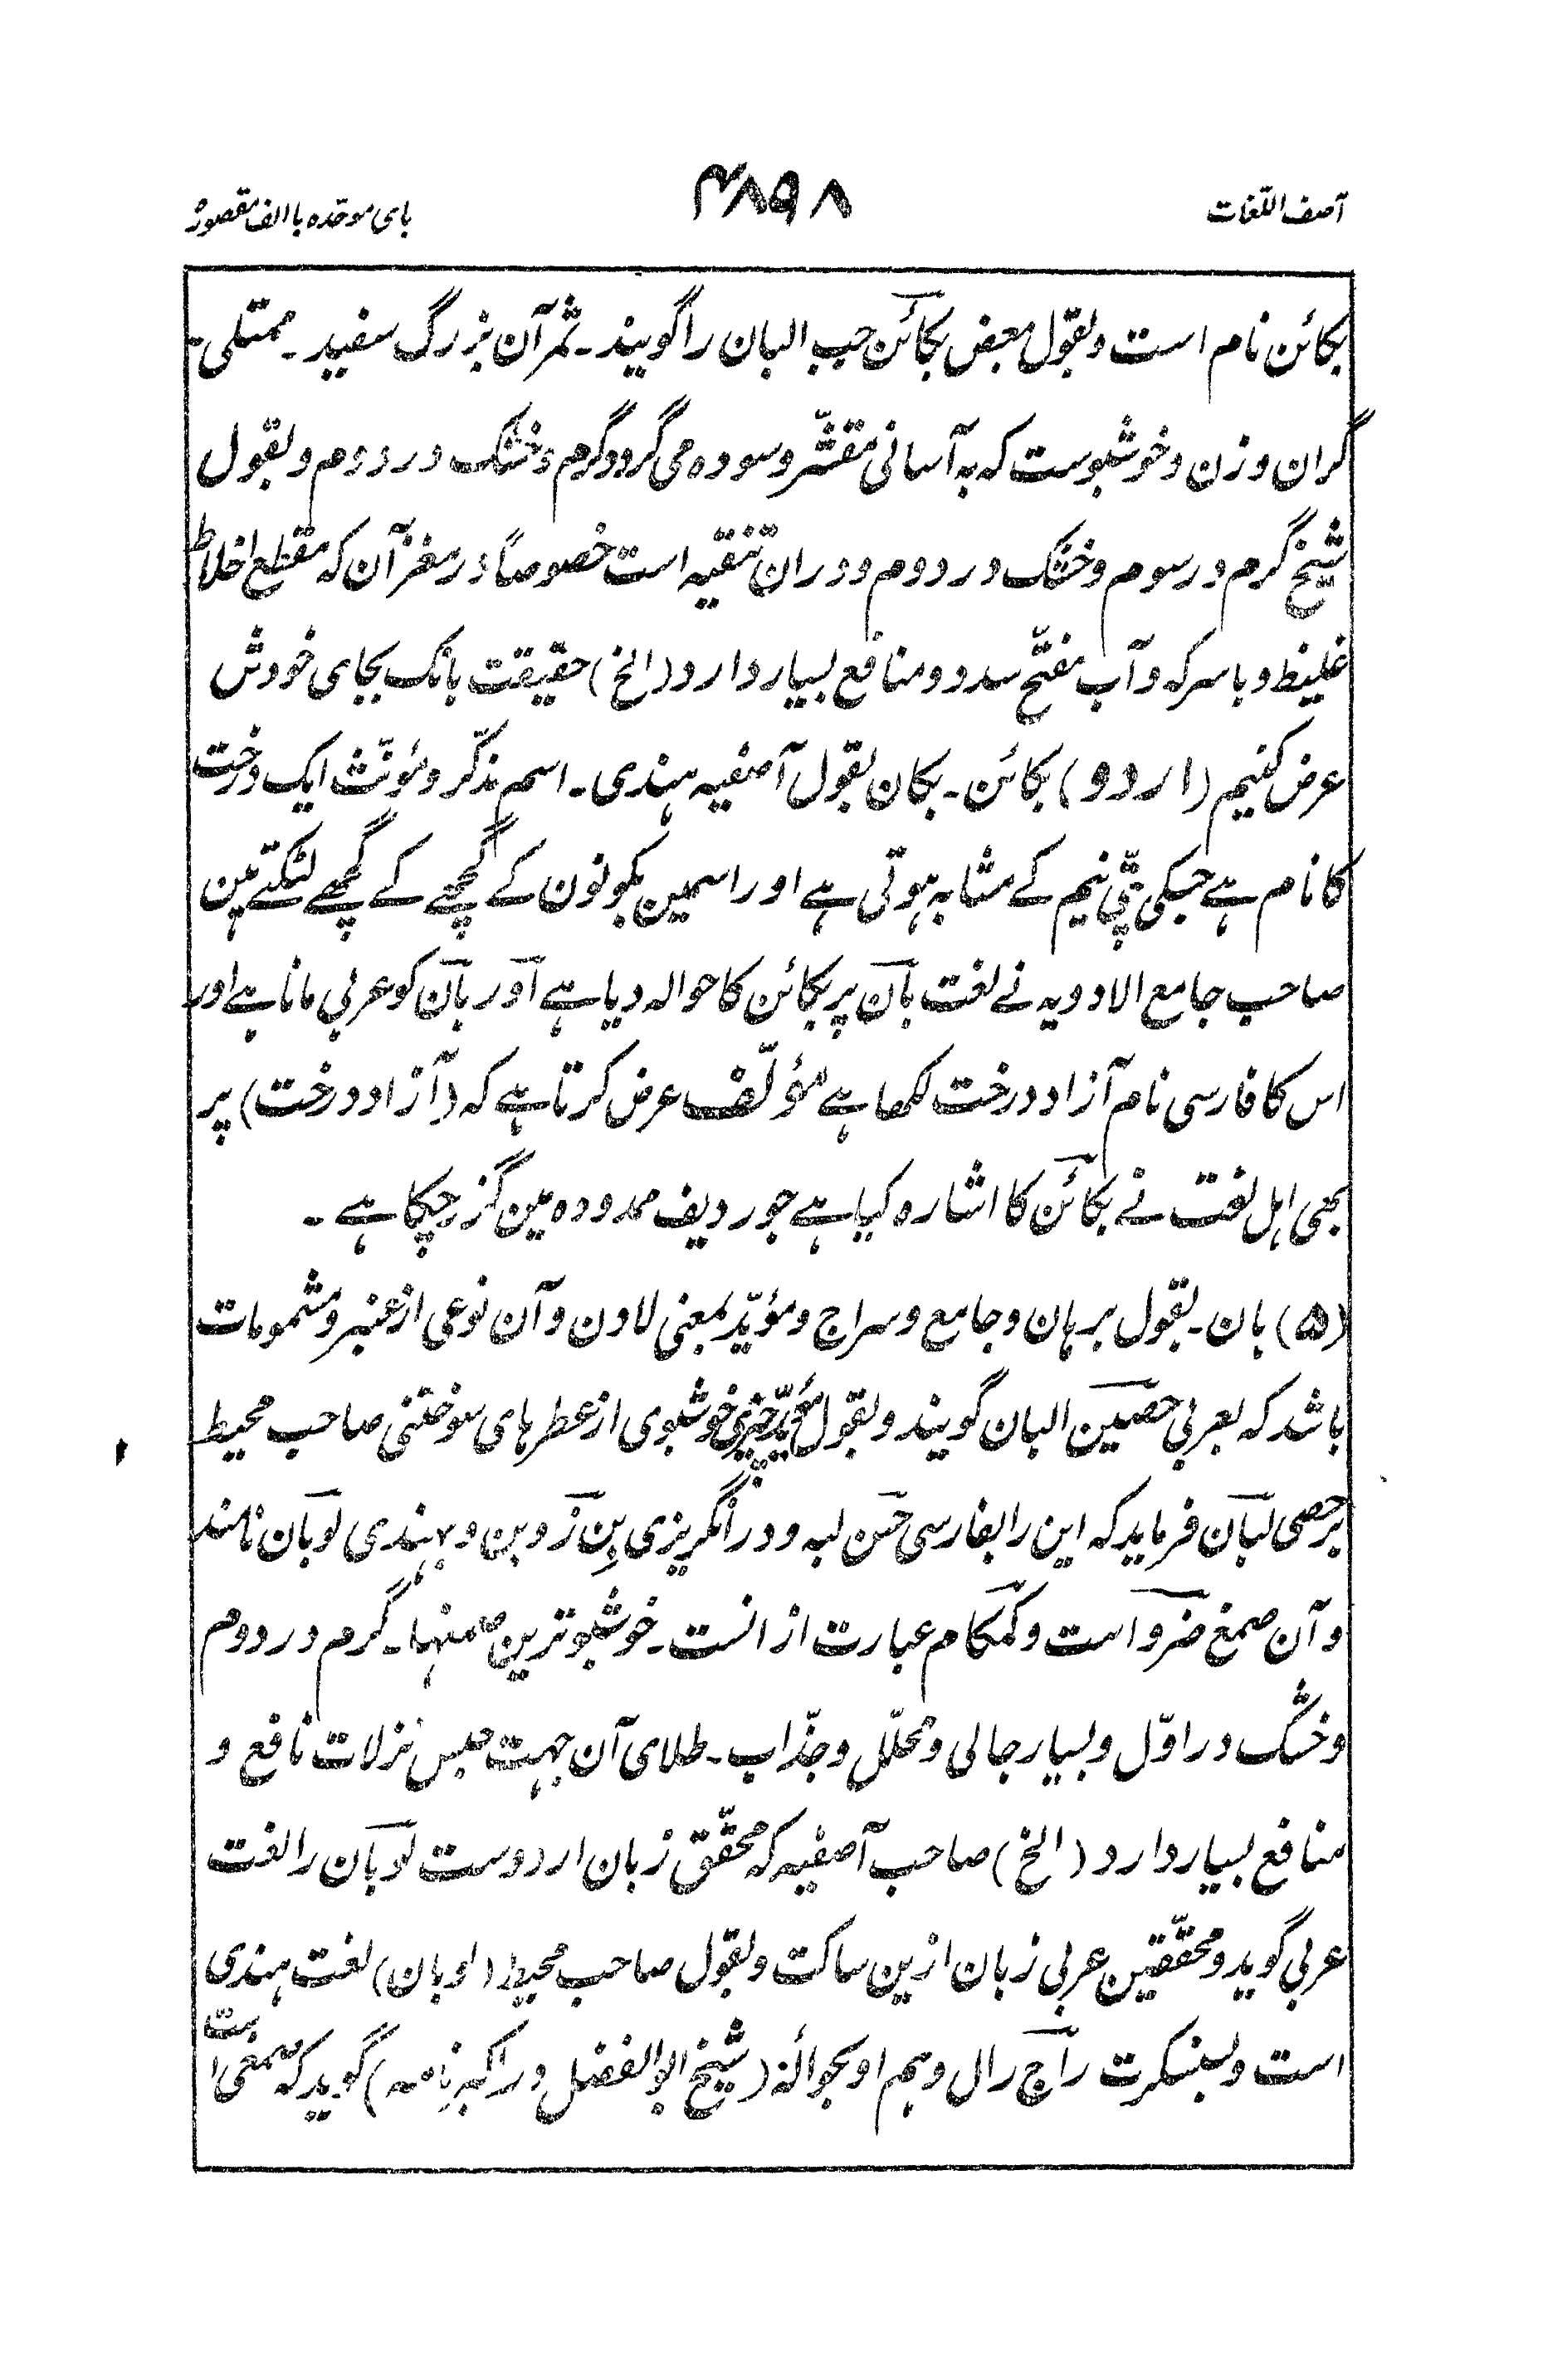 آصف اللّغات
۴۸۹۸
بای موحّدہ با الف مقصورہ
بکائن نام است و بقول بعض بکائن حب البان را گویند۔ ثمر آن بزرگ سفید۔ ممتلی۔
گران وزن و خوشبوست کہ بہ آسانی مقشّر و سودہ می گردد گرم و خشک در دوم و بقول
شیخ گرم در سوم و خشک در دوم و در ان تنقیہ است خصوصاً در مغز آن کہ مقطع اخلاط
غلیظ و با سرکہ و آب مفتّح سدد و منافع بسیار دارد (الخ) حقیقت بانک بجای خودش
عرض کنیم (اردو) بکائن۔ بکان بقول آصفیہ ہندی۔ اسم مذکّر و مؤنّث ایک درخت
کا نام ہے جسکی پتّی نیم کے مشابہ ہوتی ہے اور اسمین بکونون کے گچھے کے گچھے لٹکتے ہین
صاحب جامع الادویہ نے لغت بان پر بکائن کا حوالہ دیا ہے اور بان کو عربی مانا ہے اور
اس کا فارسی نام آزاد درخت لکھا ہے مؤلّف عرض کرتا ہے کہ (آزاد درخت) پر
بھی اہل لغت نے بکائن کا اشارہ کیا ہے جو ردیف ممدودہ مین گزر چکا ہے ۔
(۵) بان۔ بقول برہان و جامع و سراج و مؤیّد بمعنی لادن و آن نوعی از عنبر و مشمومات
باشد کہ بعربی حصین البان گویند و بقول مؤیّد چیزی خوشبوی از عطرہای سوختنی صاحب محیط
بر حصی لبان فرماید کہ این را بفارسی حسن لبہ و در انگریزی بن زوین و بہندی لوبان نامند
و آن صمغ ضرو است و کمکام عبارت از انست۔ خوشبوترین صمغہا۔ گرم در دوم
و خشک در اوّل و بسیار جالی و محلّل و جذّاب۔ طلای آن جہت حبس نزلات نافع و
منافع بسیار دارد (الخ) صاحب آصفیہ کہ محقّق زبان اردوست لوبان را لغت
عربی گوید و محقّقین عربی زبان ازین ساکت و بقول صاحب محیط (لوبان) لغت ہندی
است و بسنسکرت راج رال و ہم او بحوالۂ (شیخ ابو الفضل در اکبر نامہ) گوید کہ صمغی است